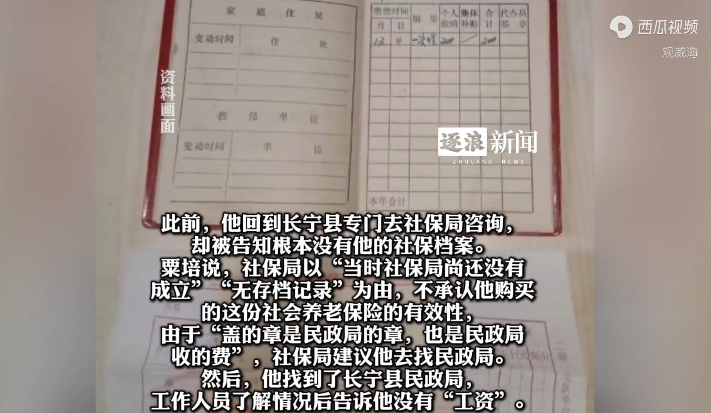 西瓜视频
观威海
资料画面
家庭住址
变动时间 住址
投保单位
变动时间 单位
缴费时间 个人缴纳 集体补助 合计 代办员签章
月 日
12 4 200 200
本年合计
逐浪新闻
ZHULANG NEWS
此前，他回到长宁县专门去社保局咨询，
却被告知根本没有他的社保档案。
粟培说，社保局以“当时社保局尚还没有
成立”“无存档记录”为由，不承认他购买
的这份社会养老保险的有效性，
由于“盖的章是民政局的章，也是民政局
收的费”，社保局建议他去找民政局。
然后，他找到了长宁县民政局，
工作人员了解情况后告诉他没有“工资”。